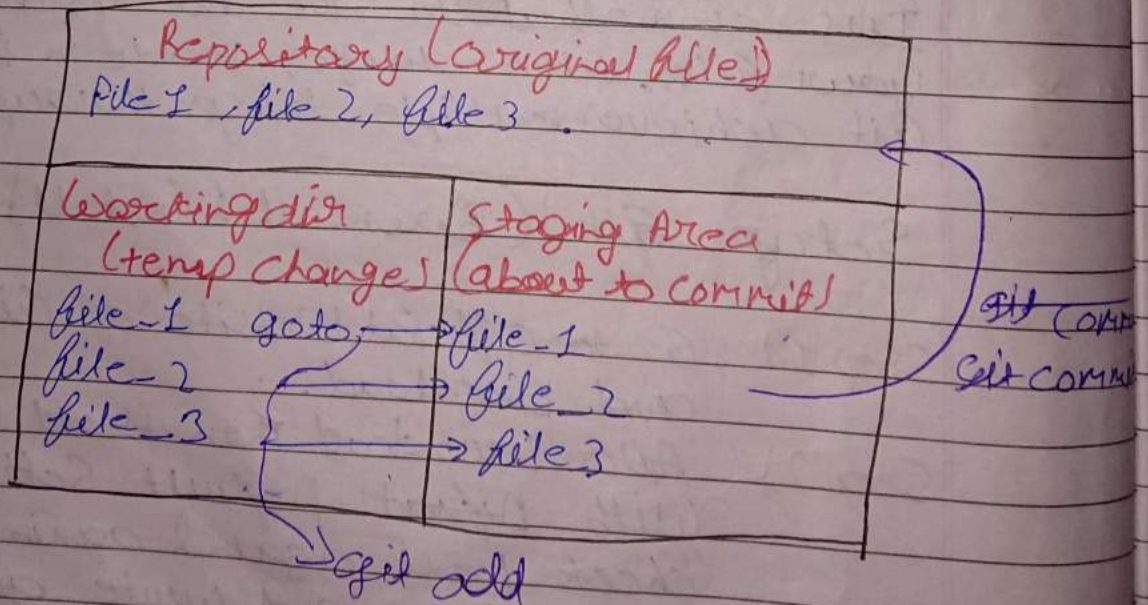 Repository (original files)
file 1, file 2, file 3.
Working dir
(temp changes)
file_1 goto
file_2
file_3
Staging Area
(about to commit)
file_1
file_2
file 3
git comm
Git comm
git add